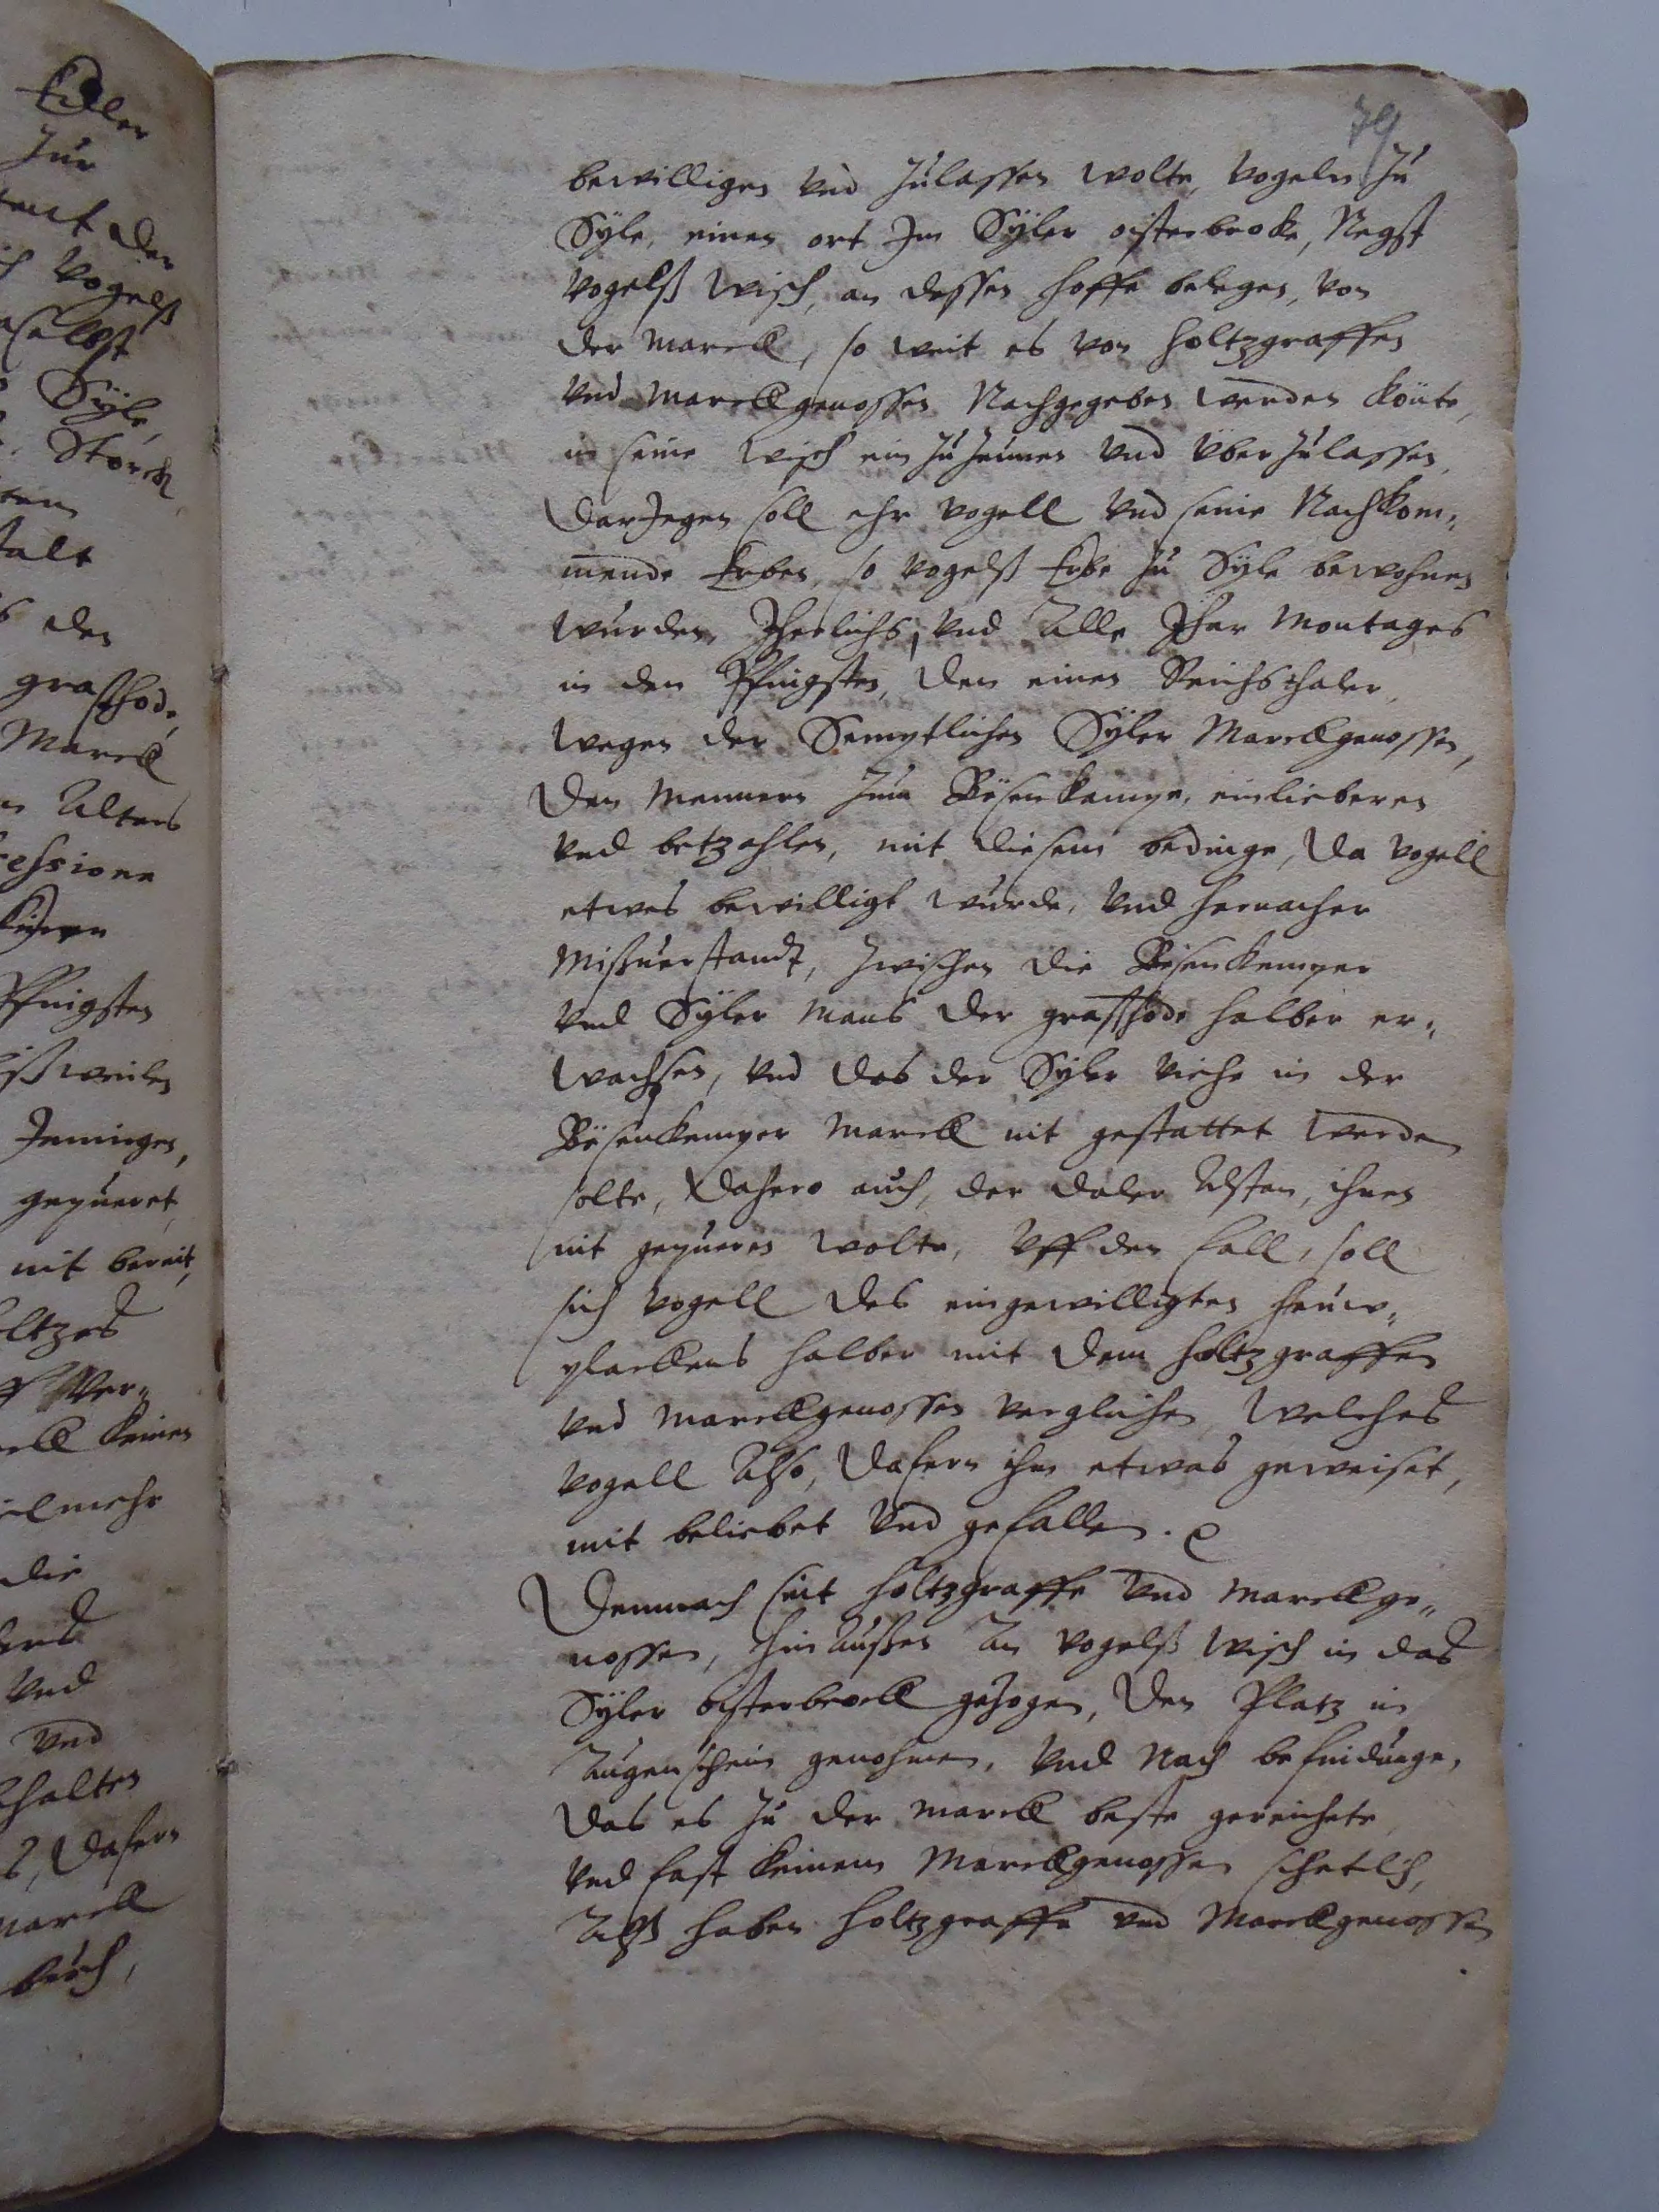 79
bewilligen vnd zulassen wolte, vogeln zu
Syle, einen ort Im Syler oisterbroke, Negst
vogelß wisch, an dessen hoffe belegen, von
der marck, so weit es von holtzgraffen
vnd marckgenossen Nachgegeben werden könte,
in seine wisch ein zu zeunen vnd vber zulassen,
darJegen soll ehr vogell vnd seine Nachkom„
mende Erben, so vogelß Erbe zu Syle bewohnen
wurden, Jherlichs, vnd Alle Jhar Montages
in den Pfingsten, den einen Reichsthaler,
wegen der Semptlichen Syler Marckgenossen,
den Mennern zum Bösenkampe, einlieberen
vnd betzahlen, mit diesem bedinge, da vogell
etwas bewilligt wurde, vnd hernacher
Mißuerstandt, zwischen die Bösenkemper
vnd Syler Mans der graßhode halber er„
wachsen, vnd das der Syler viehe in der
Bösenkemper marck nit gestattet werden
solte, dahero auch, der daler Alstan, ihnen
nit gepueren wolte, vff den fall, soll
sich vogell des eingewilligten heuw„
plackens halber mit dem holtzgraffen
vnd marckgenossen verglichen, welches
vogell Also, dafern ihm etwas geweiset,
mit beliebet vnd gefallen.
Demnach seit holtzgraffe vnd marckge„
nossen, hin Außen An vogelß wisch in das
Syler oisterbrock gezogen, den Platz in
Augenschein genohmen, vnd Nach befindunge,
das es zu der marck beste gereichete
vnd fast keinem Marckgenossen schetlich,
Alß haben holtzgraffe vnd Marckgenossen